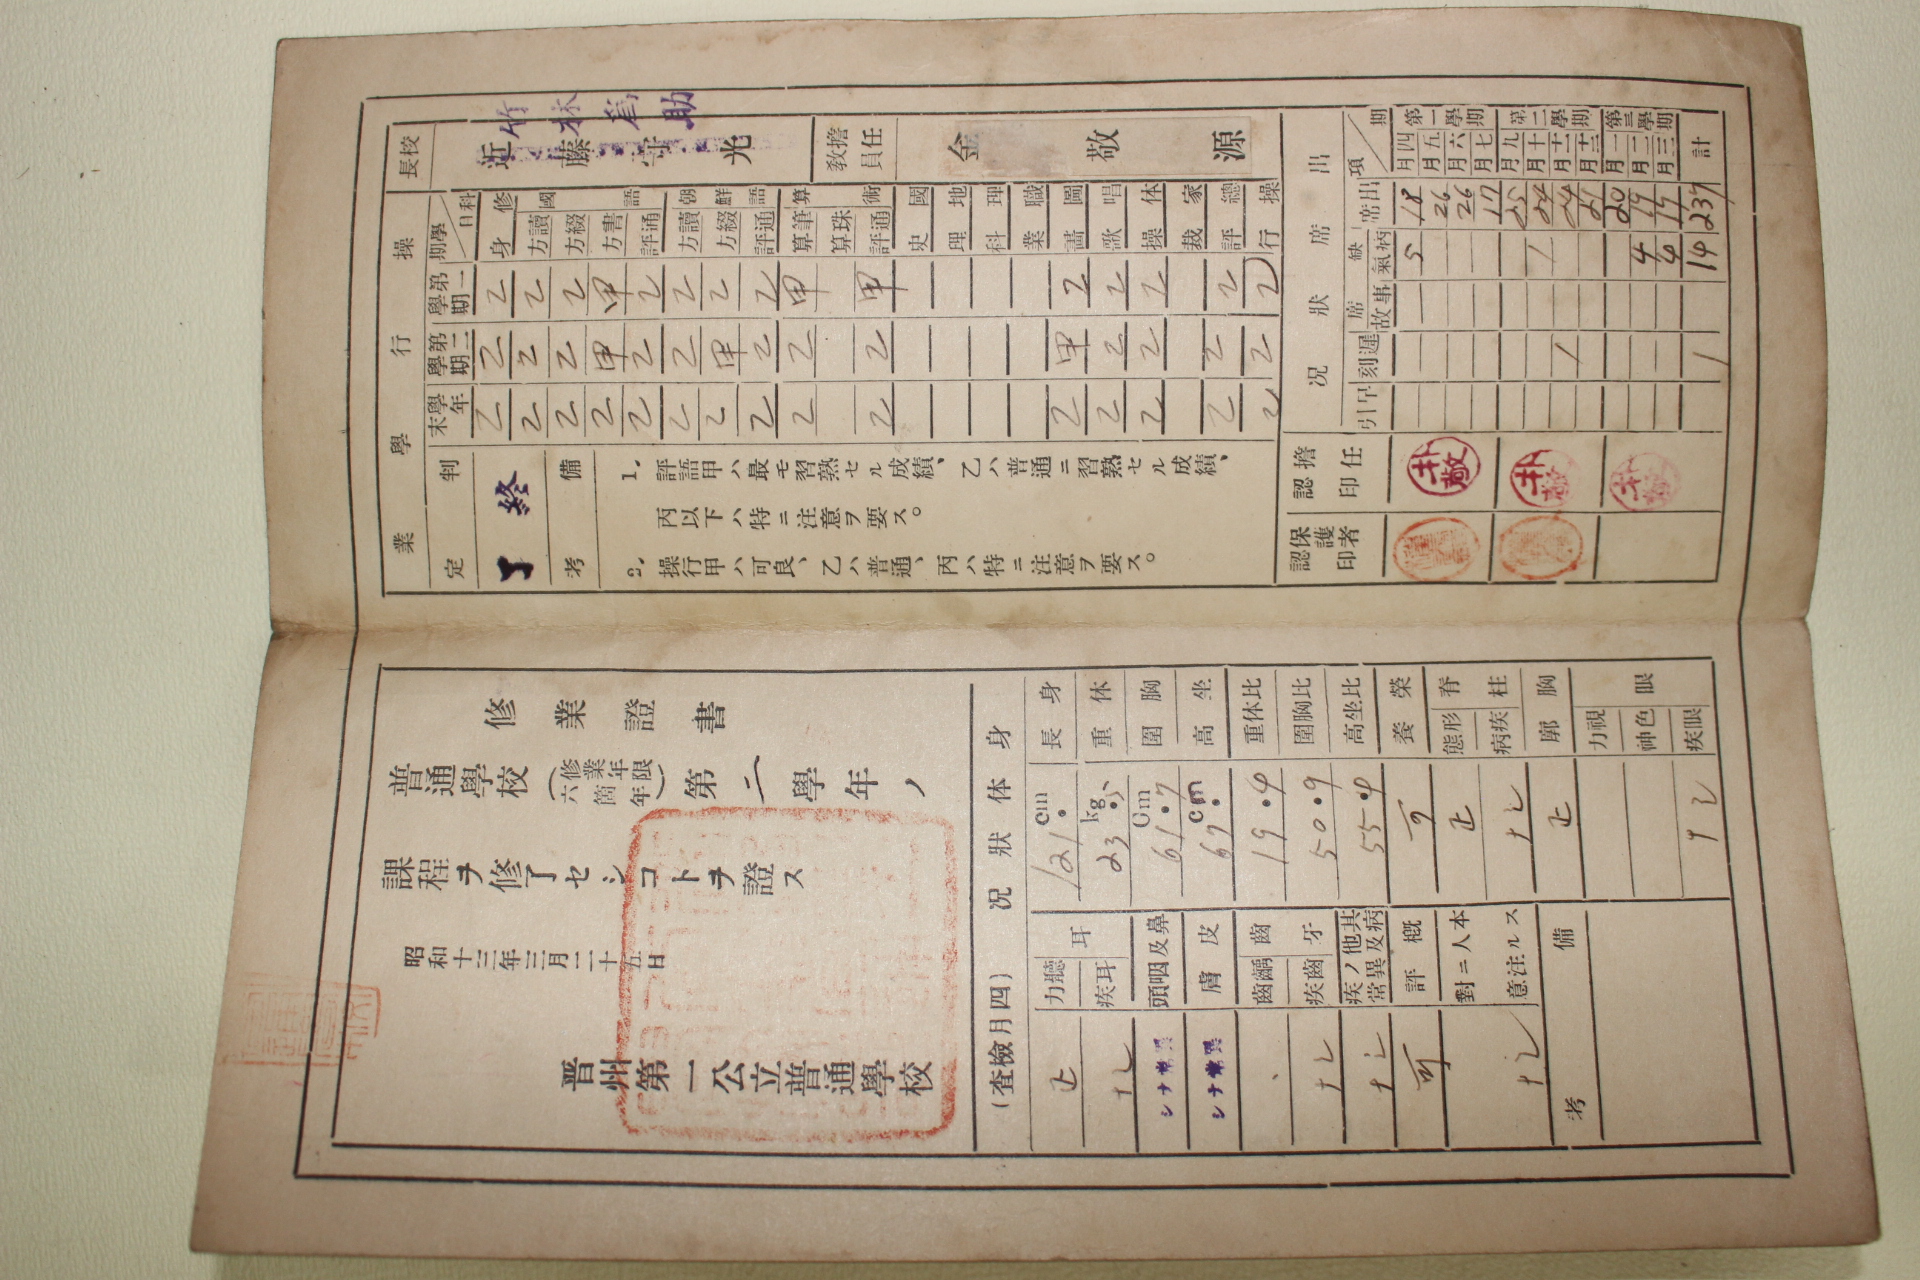 校長
近藤守光
竹林為助
擔任教員
金敬源
操行學業
學期 科目 第一學期 第二學期 學年末 判定
修身 乙 乙 乙
國語 讀方 乙 乙 乙
綴方 乙 乙 乙
書方 甲 甲 乙
通評 乙 乙 乙
朝鮮語 讀方 乙 乙 乙
綴方 乙 甲 乙
通評 乙 乙 乙
算術 筆算 甲 乙 乙
珠算
通評 甲 乙 乙
國史
地理
理科
職業
圖畫 乙 甲 乙
唱歌 乙 乙 乙
体操 乙 乙 乙
家裁
總評 乙 乙 乙
操行 乙 乙 乙
終了
備考
1. 評語甲ハ最モ習熟セル成績、乙ハ普通ニ習熟セル成績、
丙以下ハ特ニ注意ヲ要ス。
2. 操行甲ハ可良、乙ハ普通、丙ハ特ニ注意ヲ要ス。
出席狀況
期 項 出席 缺席 病氣 事故 遲刻 早引
第一學期 四月 18 5
五月 26
六月 26
七月 17
第二學期 九月 25
十月 24 1
十一月 24 1
十二月 21
第三學期 一月 20
二月 19 4
三月 17 4
計 237 14 1
擔任認印
朴敬
朴敬
朴敬
保護者認印
修業證書
普通學校(修業年限六箇年)第二學年ノ
課程ヲ修了セシコトヲ證ス
昭和十三年三月二十五日
晋州第一公立普通學校
身体狀況 (四月檢査)
身長 121. cm
体重 23.5 kg
胸圍 61.7 Cm
坐高 67. cm
比体重 19.4
比胸圍 50.9
比坐高 55.4
榮養 可
脊柱 形態 正
疾病 ナシ
胸廓 正
眼 視力
色神
眼疾 ナシ
耳 聽力 正
耳疾 ナシ
鼻及咽頭 異常ナシ
皮膚 異常ナシ
齒牙 齲齒 .
齒疾 ナシ
其他ノ疾病及異常 ナシ
概評 可
本人ニ對スル注意 ナシ
備考